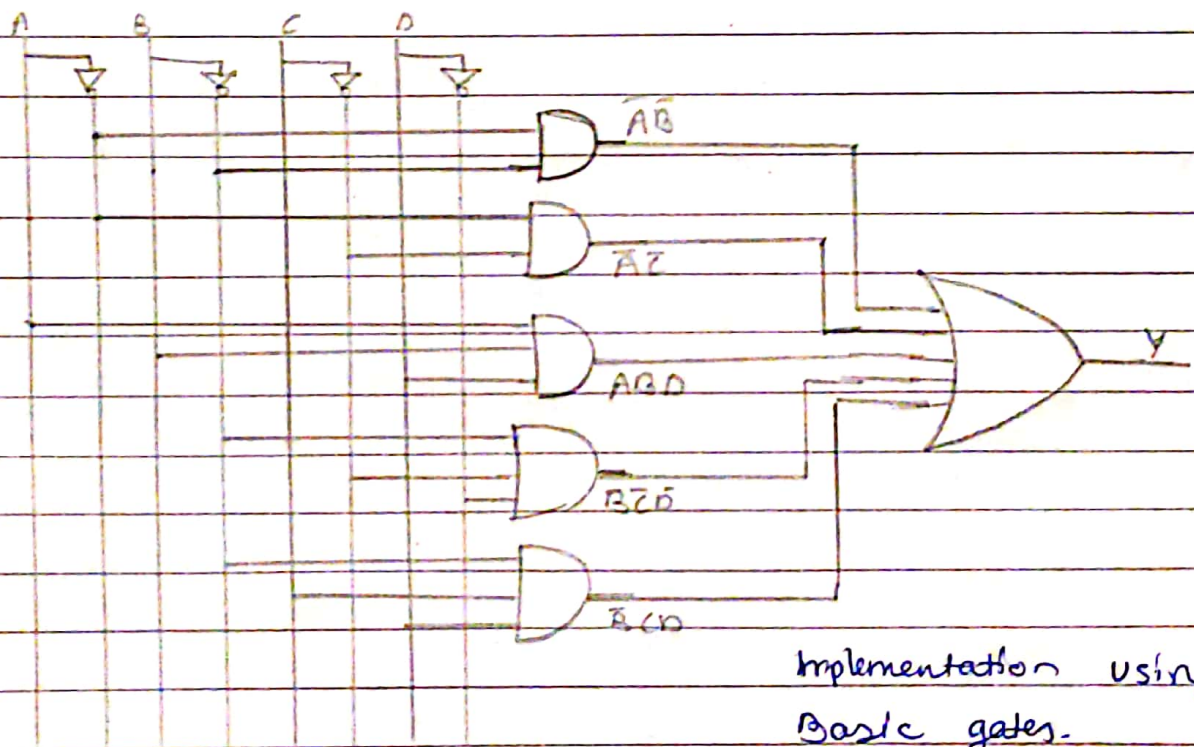 A B C D
A̅B̅
A̅C̅
ABD
B̅C̅D̅
B̅CD
Y
Implementation Usin
Basic gates.